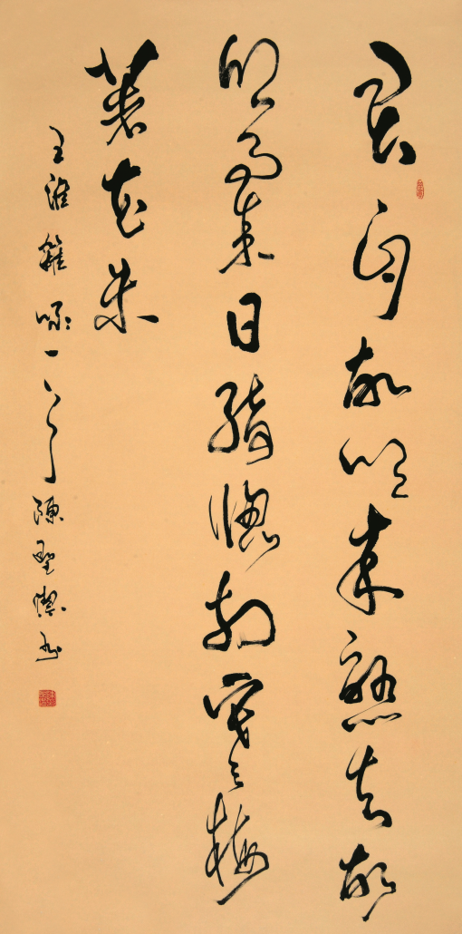 君自故鄉來應知故
鄉事來日綺牕前寒梅
著花未
王維雜詠一首 陳聖書